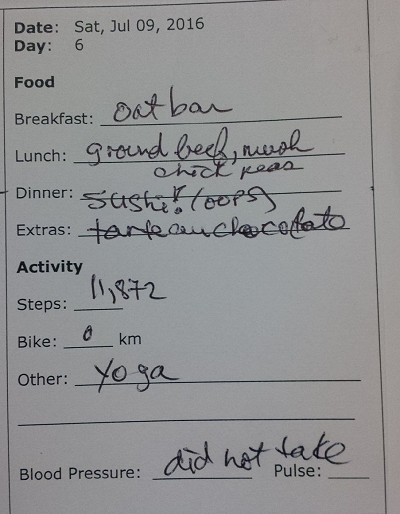 Date: Sat, Jul 09, 2016
Day: 6
Food
Breakfast: oat bar
Lunch: ground beef, mush
chick peas
Dinner: sushi! (oops)
Extras: tarte au chocolate
Activity
Steps: 11,872
Bike: 0 km
Other: yoga
Blood Pressure: did not take Pulse: